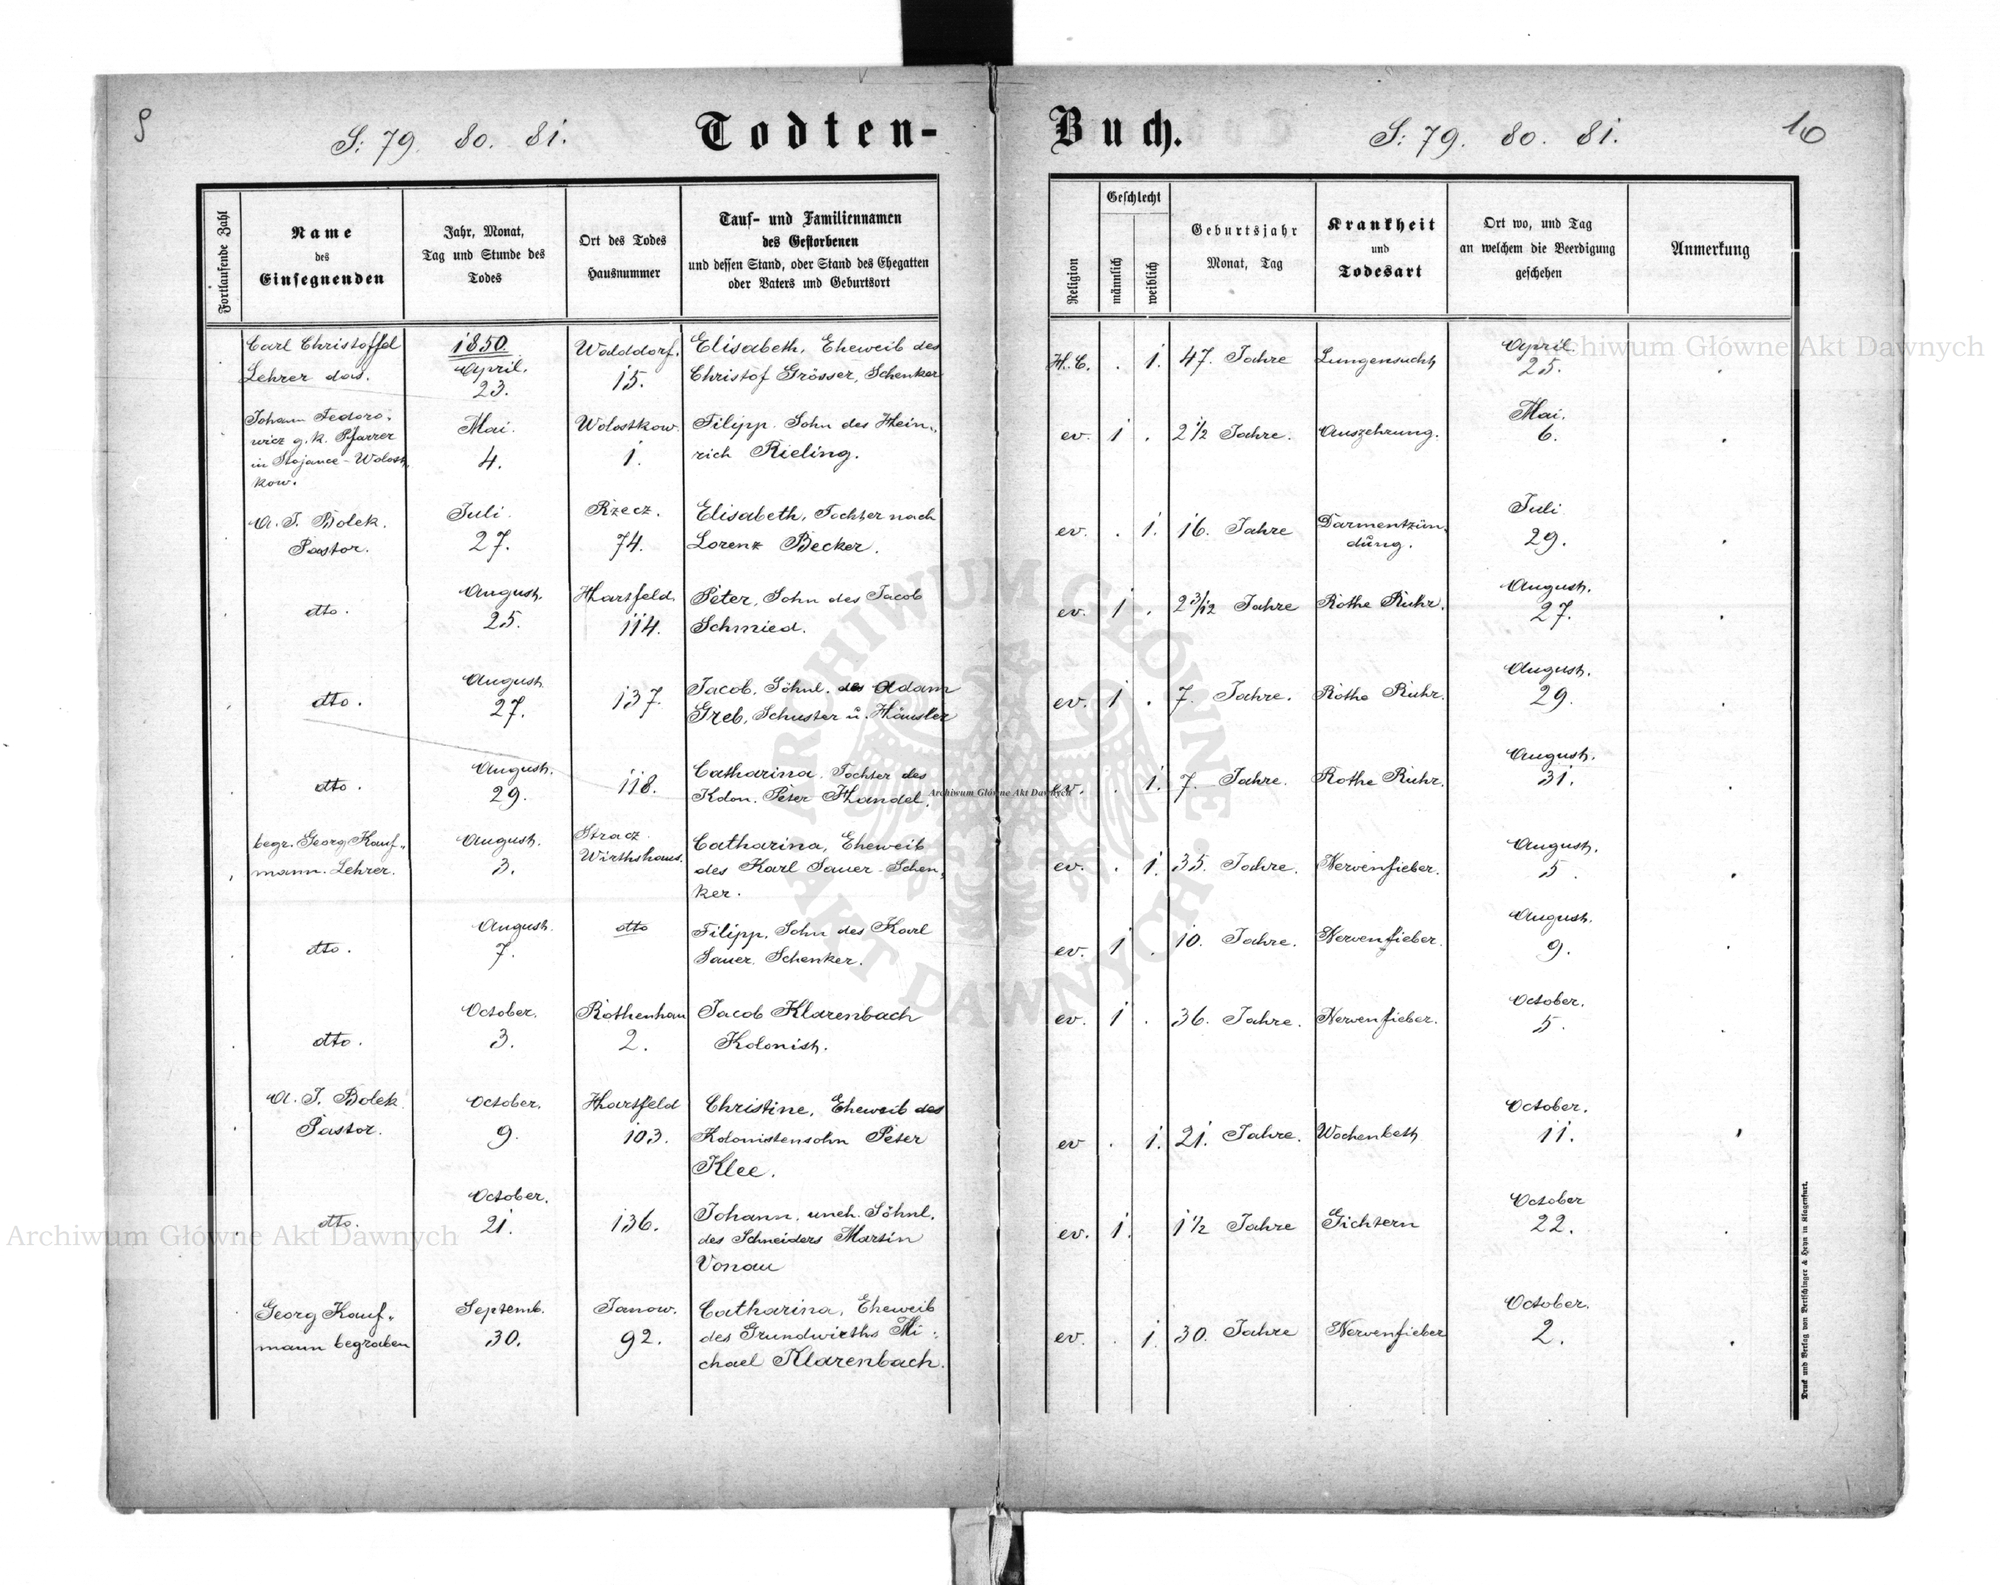 9
S: 79. 80. 81.
Todten-
Buch.
S: 79. 80. 81.
10
Fortlaufende Zahl
Name
des
Einsegnenden
Jahr, Monat,
Tag und Stunde des
Todes
Ort des Todes
Hausnummer
Tauf- und Familiennamen
des Gestorbenen
und dessen Stand, oder Stand des Ehegatten
oder Vaters und Geburtsort
Religion
Geschlecht
männlich
weiblich
Geburtsjahr
Monat, Tag
Krankheit
und
Todesart
Ort wo, und Tag
an welchem die Beerdigung
geschehen
Anmerkung
Carl Christoffel
Lehrer das.
1850.
April.
23.
15.
Elisabeth, Eheweib des
Christof Grösser, Schenker
H.C. . 1. 47. Jahre Lungensucht
April.
25.
Johann Fedoro-
wicz g.k. Pfarrer
in Stojance-Wolost-
kow.
Mai.
4.
Wolostkow.
1.
Filipp. Sohn des Hein-
rich Rieling.
ev. 1 . 2 1/2 Jahre. Auszehrung.
Mai.
6.
A. J. Bolek.
Pastor.
Juli.
27.
Rzecz.
74.
Elisabeth, Tochter nach
Lorenz Becker.
ev. . 1. 16. Jahre
Darmentzün-
dung.
Juli
29.
dto.
August.
25.
Hartfeld
114.
Peter, Sohn des Jacob
Schmied.
ev. 1 . 2 3/12 Jahre Rothe Ruhr.
August.
27.
dto.
August
27.
137.
Jacob, Söhnl. des Adam
Greb, Schuster u. Häusler
ev. 1 . 7. Jahre. Rothe Ruhr.
August.
29.
dto.
August.
29.
118.
Catharina, Tochter des
Kolon. Peter Handel.
ev. . 1. 7. Jahre. Rothe Ruhr.
August.
31.
begr. Georg Kauf-
mann. Lehrer.
August.
3.
Stracz
Wirthshaus.
Catharina, Eheweib
des Karl Sauer Schen-
ker.
ev. . 1. 35. Jahre. Nervenfieber.
August.
5.
dto.
August.
7.
dto
Filipp, Sohn des Karl
Sauer, Schenker.
ev. 1 . 10. Jahre. Nervenfieber.
August.
9.
dto.
October.
3.
Rothenhan
2.
Jacob Klarenbach
Kolonist.
ev. 1 . 36. Jahre. Nervenfieber.
October.
5.
A. J. Bolek
Pastor.
October.
9.
Hartfeld
103.
Christine, Eheweib des
Kolonistensohn Peter
Klee.
ev . 1. 21. Jahre. Wochenbett
October.
11.
dto.
October.
21.
136.
Johann, uneh. Söhnl.
des Schneiders Martin
Vonau
ev. 1. 1 1/2 Jahre Gichtern
October
22.
Georg Kauf-
mann begraben
Septemb.
30.
Janow.
92.
Catharina, Eheweib
des Grundwirths Mi-
chael Klarenbach.
ev. . 1. 30. Jahre Nervenfieber
October.
2.
Druck und Verlag von Bertschinger & Heyn in Klagenfurt.
Archiwum Główne Akt Dawnych
Archiwum Główne Akt Dawnych
Archiwum Główne Akt Dawnych
ARCHIWUM GŁÓWNE AKT DAWNYCH